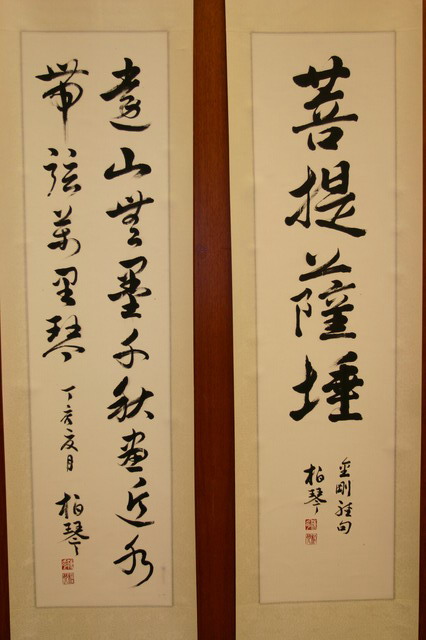 菩提薩埵
金剛經句
柏琴
遠山無墨千秋畫近水
帶弦萬里琴
丁亥夏月
柏琴